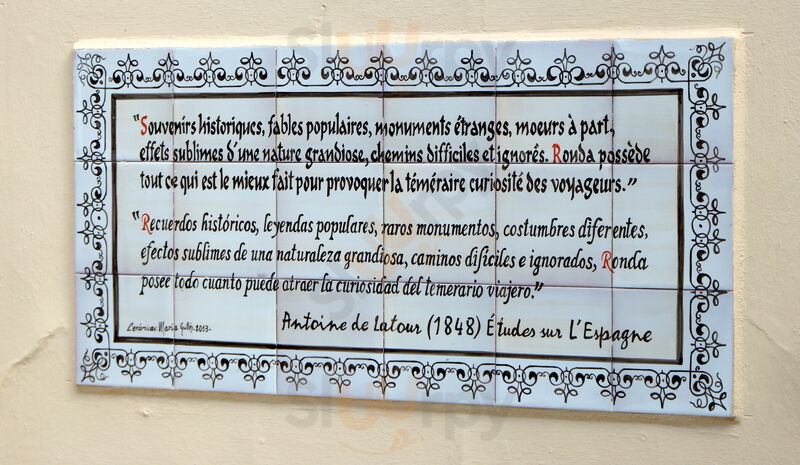 "Souvenirs historiques, fables populaires, monuments étranges, moeurs à part,
effets sublimes d'une nature grandiose, chemins difficiles et ignorés. Ronda possède
tout ce qui est le mieux fait pour provoquer la téméraire curiosité des voyageurs."
"Recuerdos históricos, leyendas populares, raros monumentos, costumbres diferentes,
efectos sublimes de una naturaleza grandiosa, caminos difíciles e ignorados, Ronda
posee todo cuanto puede atraer la curiosidad del temerario viajero."
Antoine de Latour (1848) Études sur L'Espagne
Cerámicas Maria -2013-
slUUrpy
slUUrpy